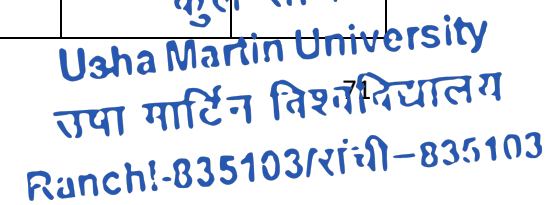 Usha Martin University
उषा मार्टिन विश्वविद्यालय
71
Ranchi-835103/रांची-835103